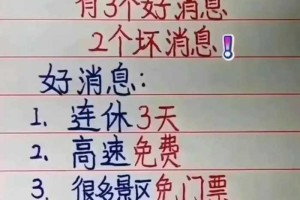 有3个好消息
2个坏消息!
好消息:
1、连休3天
2、高速免费
3、很多景区免门票